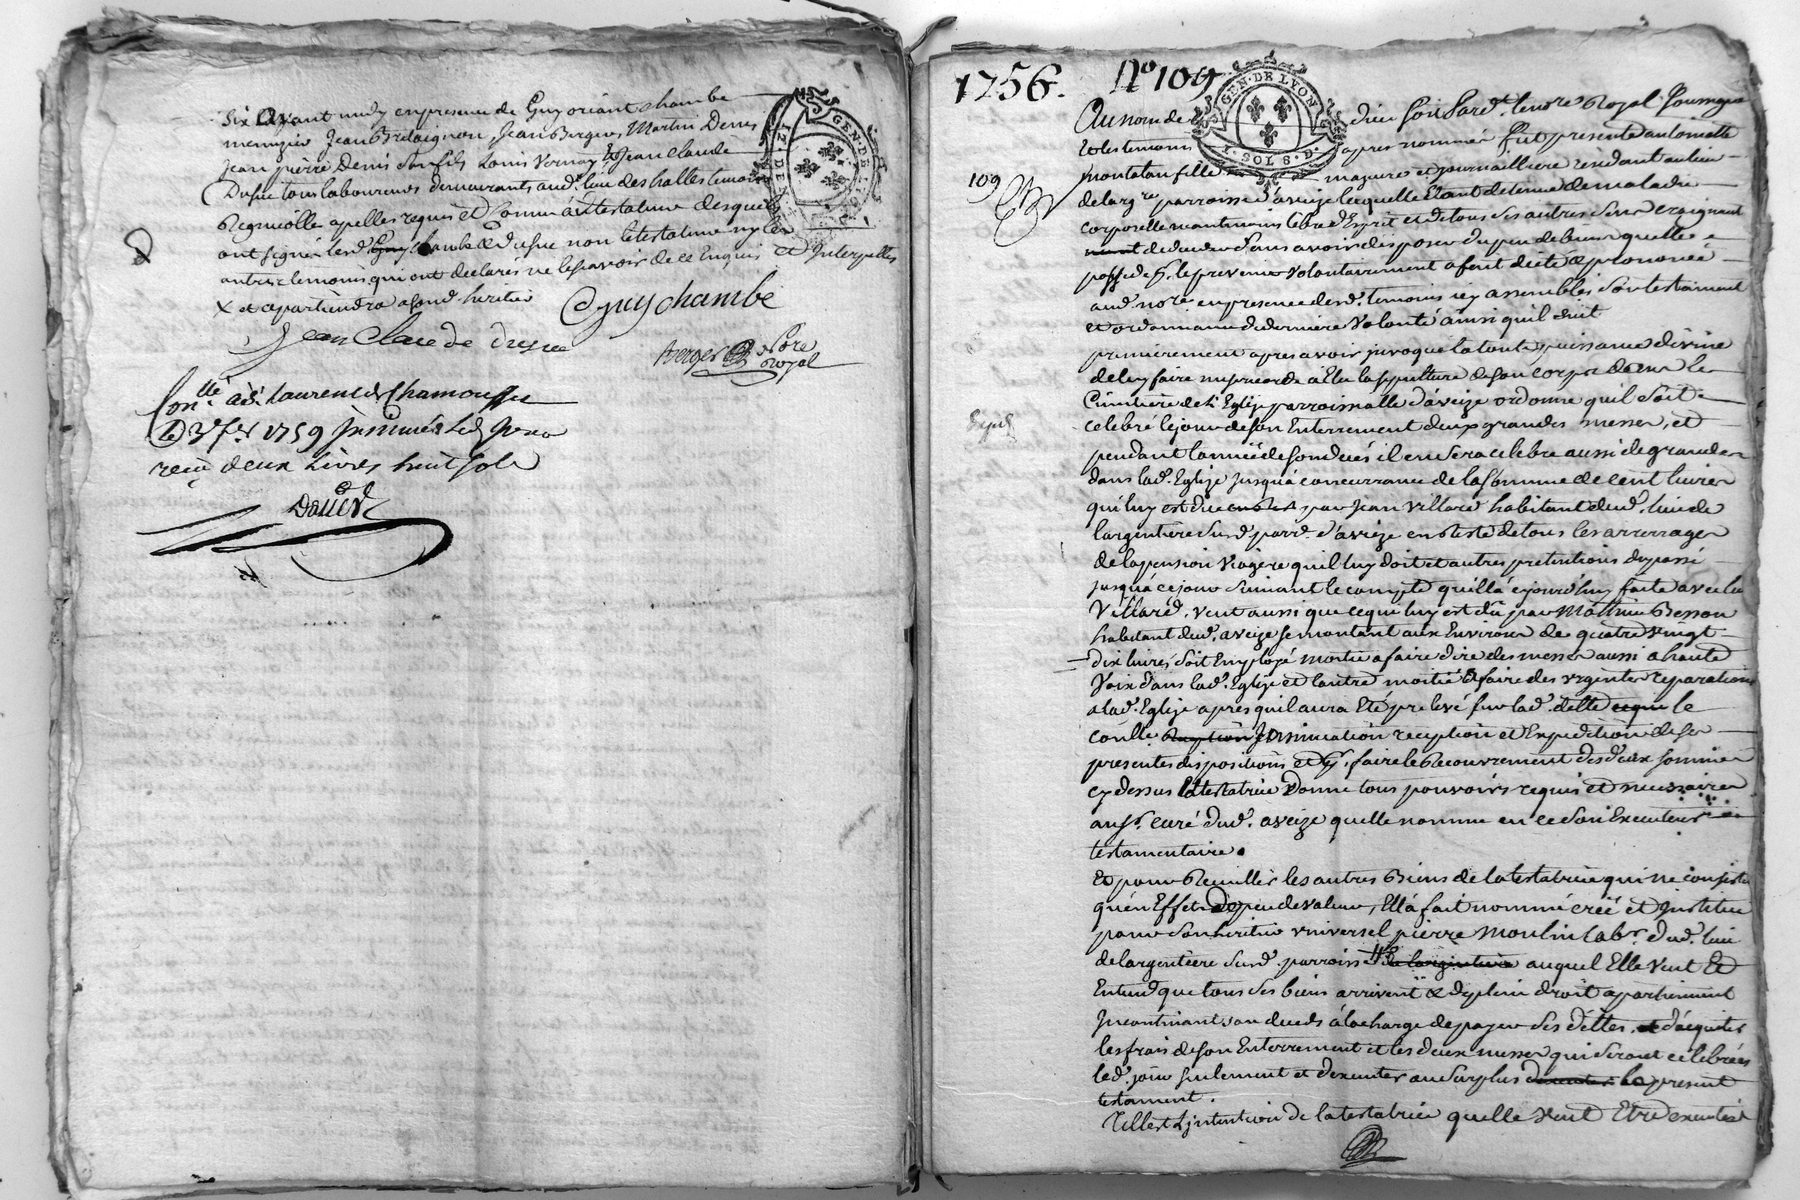 Six avant midy en presence de Guy oriant chambe
menuzier Jean Bredaignon, Jean Berger, Martin Denis
Jean pierre Denis Son fils Louis Vernay Et Jean Claude
Dufue tous laboureurs demeurants aud. lieu des halles temoins
Regnicolle apelles requis et Comme la testatrice desquels
ont signé led. Guy chambe & Dufue non la testatrice ny les
autres temoins qui ont declarés ne le scavoir de ce Enquis et Interpellés
X et apartiendra asond. heritier
Guy chambe
Jean Claude dufue
Berger Nore
Royal
GEN. DE
Conllé à St Laurent de Chamousset
le 3e fer 1759 Insinué led jour
reçu deux Livres huit sols
1756. No 109
GEN. DE LYON
1. SOL 8. D.
109
Au nom de dieu soit Pard.t le nore Royal Soussigné
Et les temoins apres nommés fut presente antoinette
montatan fille majeure et journalliere résidant au lieu
de larg.re parroisse d'aveize lecquelle Etant detenue de maladie
corporelle neantmoins libre d'Esprit et de tous ses autres sens craignant
de deceder Sans avoir disposer du peu de biens quelle
possede p. le prevenir Volontairement a fait dicté & prononcé
aud. nore en presence desd. temoins icy assemblés son testament
et ordonnance de derniere Volonté ainsi quil suit
premierement apres avoir invoqué la toute puissance divine
de luy faire misericorde à Elu la sepulture de son corps dans le
Cimetiere de l'Eglise parroissialle d'aveize ordonne quil soit
celebré le jour de son Enterrement deux grandes messes, et
pendant l'année de son décés il en sera celebre aussi de grandes
dans lad. Eglise jusqu'a concurrance de la Somme de cent livres
qui luy est due en reste par Jean Villard habitant dud. lieu de
largentiere susd. parr. d'aveize en reste de tous les arrerrages
de la pension viagere quil luy doit et autres pretentions du passé
jusqu'a ce jour suivant le compte quilla ejourd'huy faite avec led
Villard. veut aussi que ce qui luy est dû par Mathieu Besson
habitant dud. aveize se montant aux Environs de quatre vingt
dix livres, soit Employé moitié a faire dire des messes aussi a haute
Voix dans lad. Eglise et lautre moitié a faire des urgentes reparations
a lad. Eglise apres quil aura Eté prelevé sur lad. dette le
conlle Insinuation reception et Expedition de ses
presentes dispositions et p. faire le Recouvrement desd. deux sommes
cy dessus la testatrice Donne tous pouvoirs requis et necessaires
au sr. curé dud. aveize quelle nomme en ce son Executeur
testamentaire.
Et pour Recuillir les autres Biens de la testatrice qui ne consiste
qu'en Effets de peu de valeur, Ell'a fait nommé créé et Institué
pour son heritier universel pierre Moulin labr. dud. lieu
de largentiere susd. parroisse auquel Elle veut Et
Entend que tous ses biens arrivent & de plein droit apartiennent
Incontinant son decés à la charge de payer ses dettes, d'acquiter
les frais de son Enterrement et les deux messes qui seront celebrées
led. jour seulement et d'executer au surplus le present
testament.
Telle est L'intention de la testatrice quelle veut Etre executé